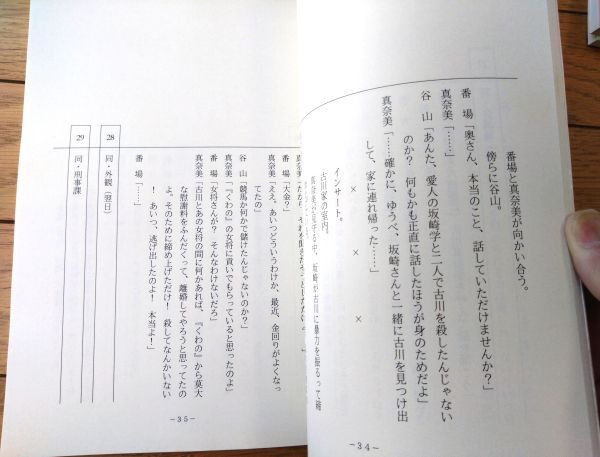 番場と真奈美が向かい合う。
傍らに谷山。
番　場「奥さん、本当のこと、話していただけませんか？」
真奈美「……」
谷　山「あんた、愛人の坂崎学と二人で古川を殺したんじゃない
のか？　何もかも正直に話したほうが身のためだよ」
真奈美「……確かに、ゆうべ、坂崎さんと一緒に古川を見つけ出
して、家に連れ帰った……」
×　×　×
インサート。
古川家の室内。
真奈美が見守る中、坂崎が古川に暴力を振るって
－34－
てたの」
番　場「大金？」
真奈美「ええ、あいつどういうわけか、最近、金回りがよくなっ
てたの」
谷　山「競馬か何かで儲けたんじゃないのか？」
真奈美「『くわの』の女将に貢いでもらっていると思ったのよ」
番　場「女将さんが？　そんなわけないだろ」
真奈美「古川とあの女将の間に何かあれば、『くわの』から莫大
な慰謝料をふんだくって、離婚してやろうと思ってたの
よ。そのために締め上げただけ！　殺してなんかいない
！　あいつ、逃げ出したのよ！　本当よ！」
番　場「……」
28　同・外観（翌日）
29　同・刑事課
－35－